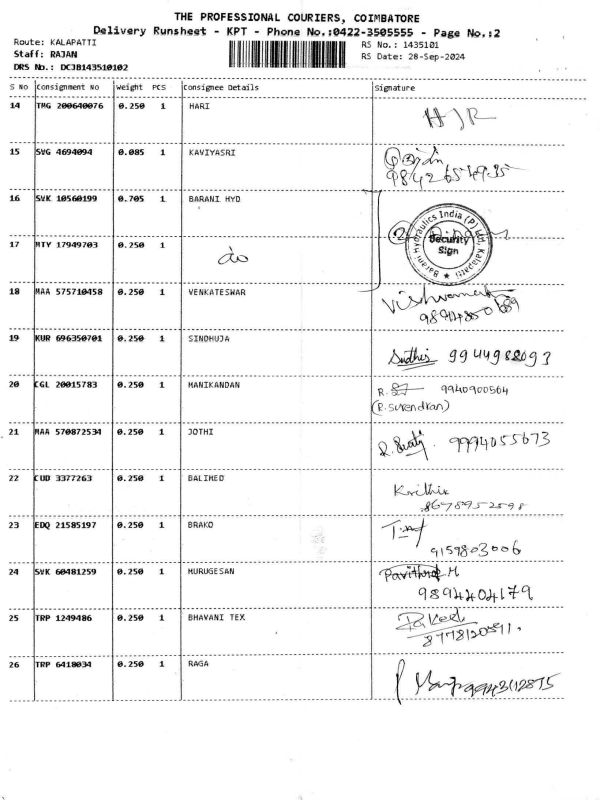 THE PROFESSIONAL COURIERS, COIMBATORE
Delivery Runsheet - KPT - Phone No.:0422-3505555 - Page No.:2
Route: KALAPATTI
Staff: RAJAN
DRS No.: DCJB143510102
RS No.: 1435101
RS Date: 28-Sep-2024
S No Consignment No Weight PCS Consignee Details Signature
14 TMG 200640076 0.250 1 HARI
15 SVG 4694094 0.085 1 KAVIYASRI
16 SVK 10560199 0.705 1 BARANI HYD
Barani Hydraulics India (P) Ltd, Kalapatti
Security
Sign
17 MTY 17949703 0.250 1 do
18 MAA 575710458 0.250 1 VENKATESWAR
19 KUR 696350701 0.250 1 SINDHUJA
9944988093
20 CGL 20015783 0.250 1 MANIKANDAN
9940900564
(R. Surendran)
21 MAA 570872534 0.250 1 JOTHI
9994055673
22 CUD 3377263 0.250 1 BALIMED
Krithik
8678952598
23 EDQ 21585197 0.250 1 BRAKO
9159803006
24 SVK 60481259 0.250 1 MURUGESAN
Pavithra M
9894404179
25 TRP 1249486 0.250 1 BHAVANI TEX
26 TRP 6418034 0.250 1 RAGA